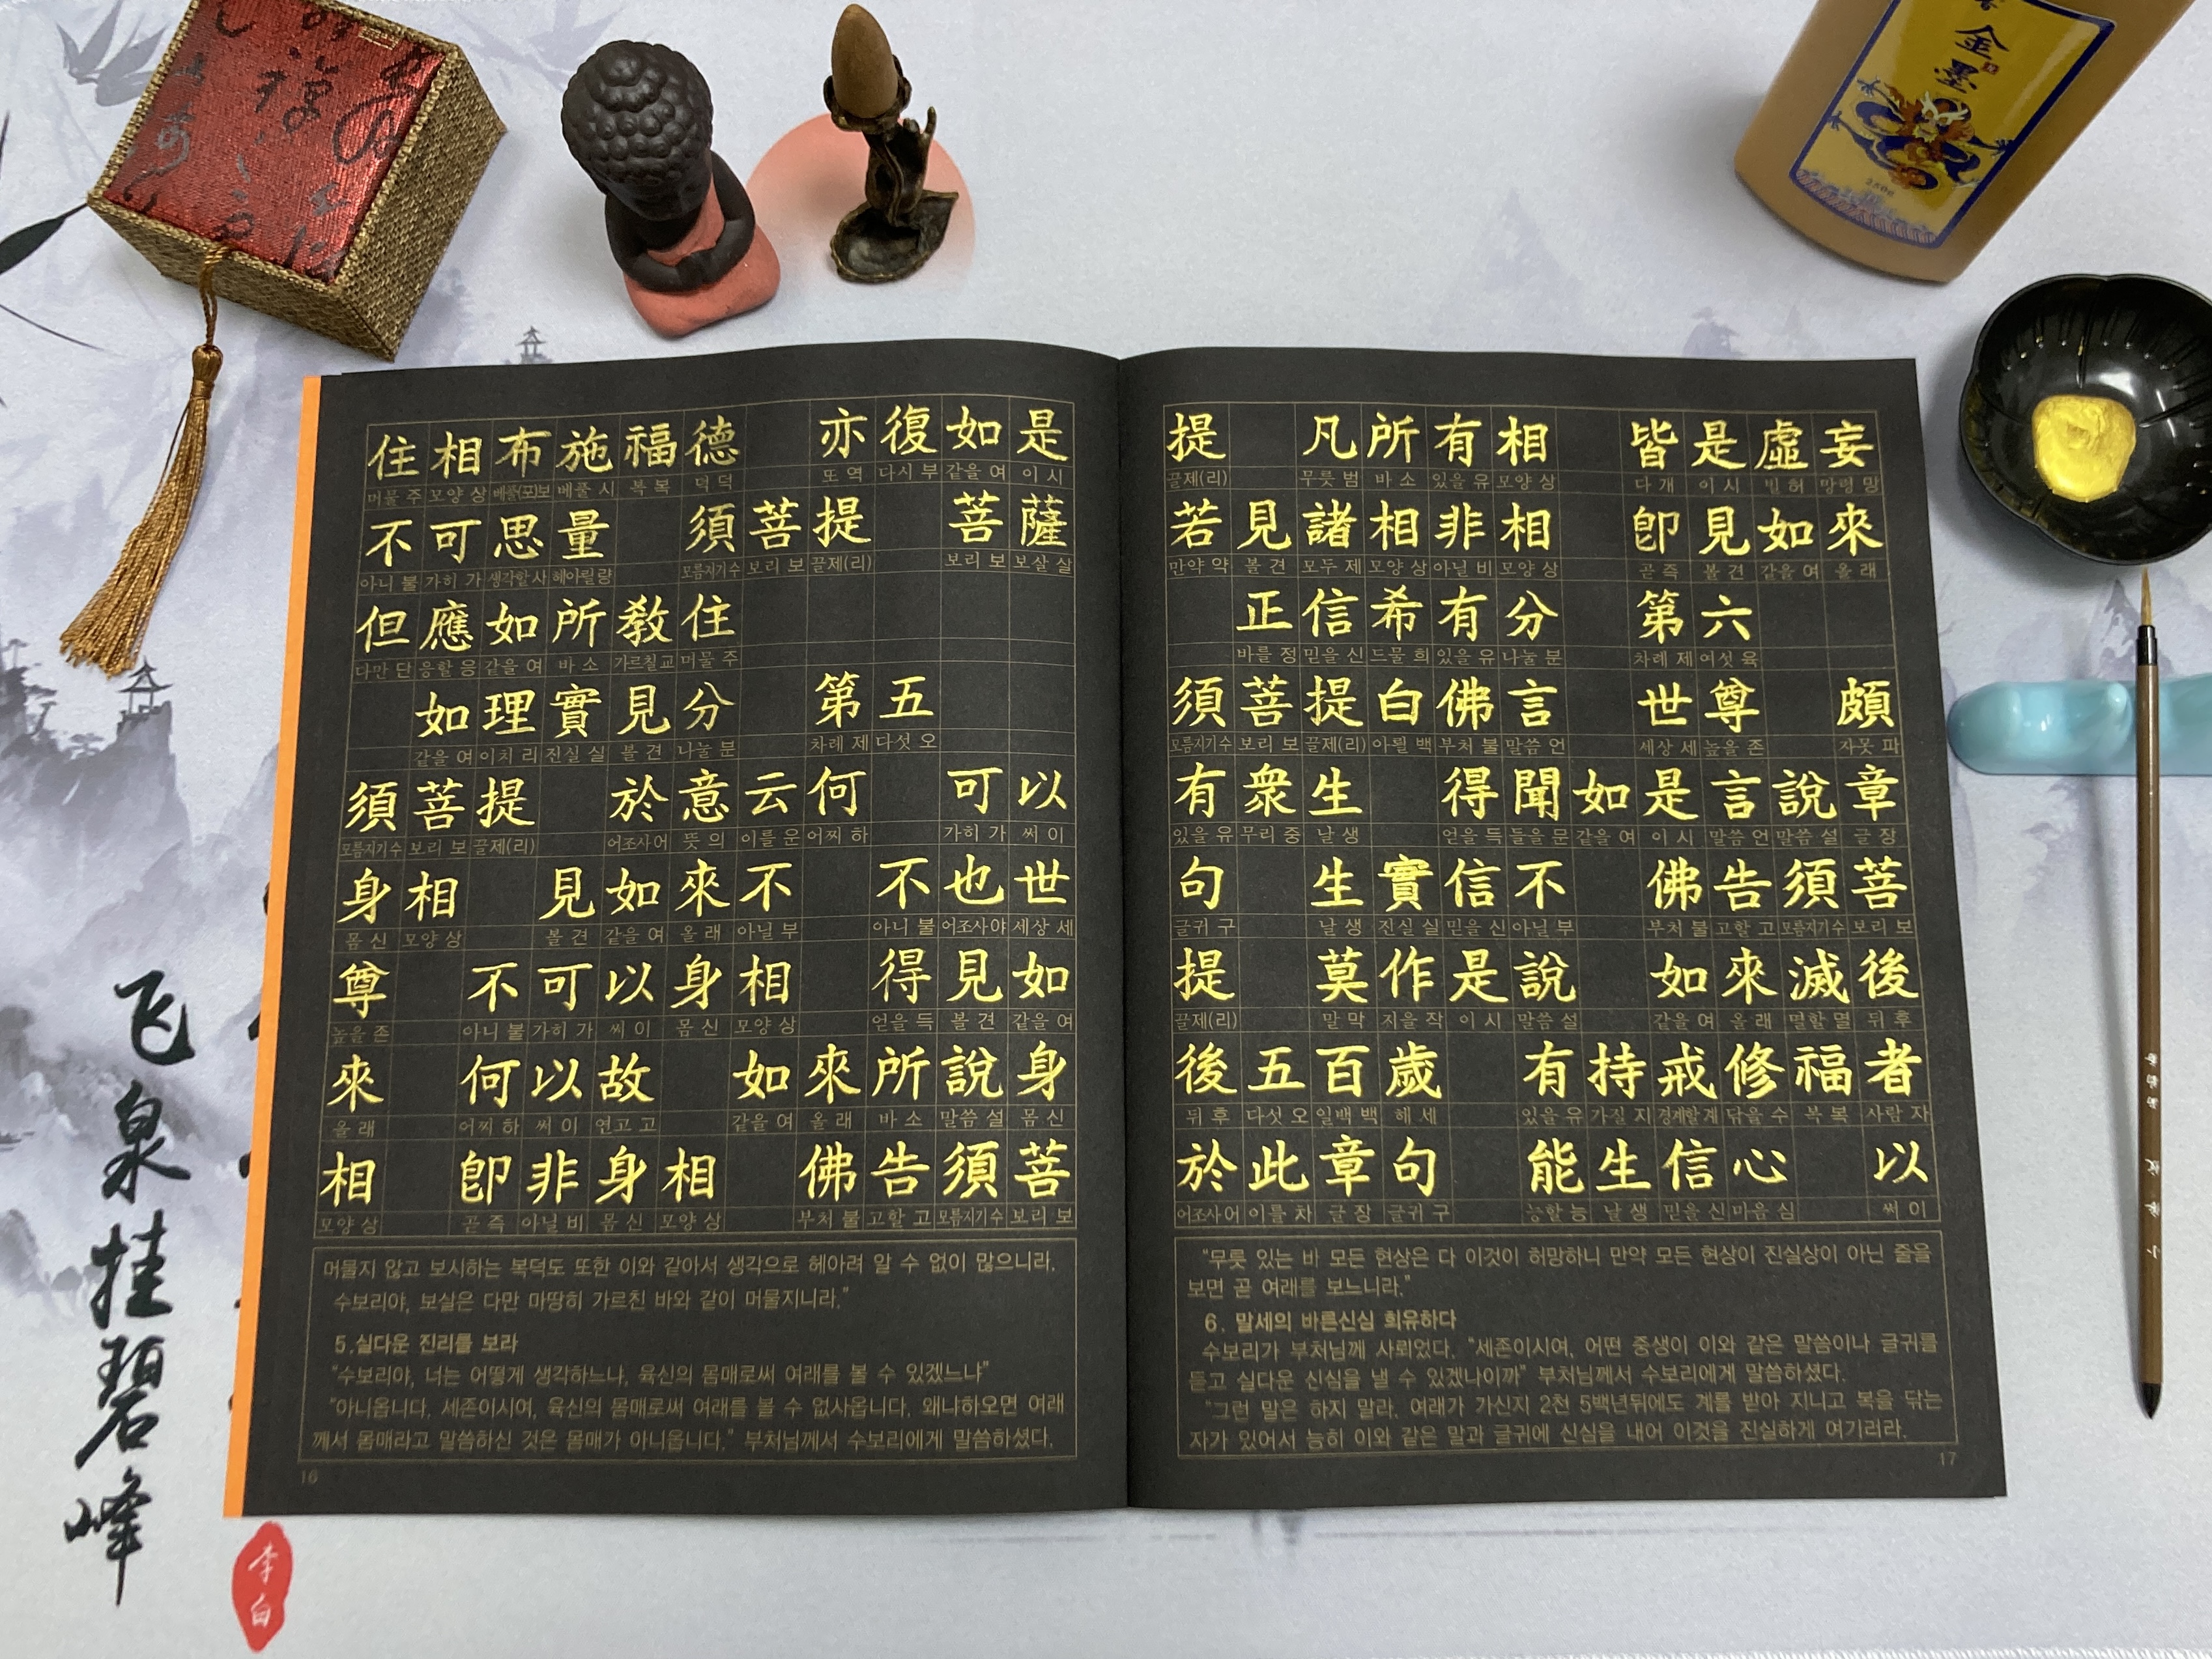 金墨
250g
住相布施福德 亦復如是
머물 주 모양 상 베풀(포)보 베풀 시 복 복 덕 덕 또 역 다시 부 같을 여 이 시
不可思量 須菩提 菩薩
아니 불 가히 가 생각할 사 헤아릴 량 모름지기 수 보리 보 끌제(리) 보리 보 보살 살
但應如所敎住
다만 단 응할 응 같을 여 바 소 가르칠 교 머물 주
如理實見分 第五
같을 여 이치 리 진실 실 볼 견 나눌 분 차례 제 다섯 오
須菩提 於意云何 可以
모름지기 수 보리 보 끌제(리) 어조사 어 뜻 의 이를 운 어찌 하 가히 가 써 이
身相 見如來不 不也世
몸 신 모양 상 볼 견 같을 여 올 래 아닐 부 아니 불 어조사 야 세상 세
尊 不可以身相 得見如
높을 존 아니 불 가히 가 써 이 몸 신 모양 상 얻을 득 볼 견 같을 여
來 何以故 如來所說身
올 래 어찌 하 써 이 연고 고 같을 여 올 래 바 소 말씀 설 몸 신
相 卽非身相 佛告須菩
모양 상 곧 즉 아닐 비 몸 신 모양 상 부처 불 고할 고 모름지기 수 보리 보
머물지 않고 보시하는 복덕도 또한 이와 같아서 생각으로 헤아려 알 수 없이 많으니라.
수보리야, 보살은 다만 마땅히 가르친 바와 같이 머물지니라."
5.실다운 진리를 보라
"수보리야, 너는 어떻게 생각하느냐, 육신의 몸매로써 여래를 볼 수 있겠느냐"
"아니옵니다. 세존이시여, 육신의 몸매로써 여래를 볼 수 없사옵니다. 왜냐하오면 여래
께서 몸매라고 말씀하신 것은 몸매가 아니옵니다." 부처님께서 수보리에게 말씀하셨다.
16
提 凡所有相 皆是虛妄
끌제(리) 무릇 범 바 소 있을 유 모양 상 다 개 이 시 빌 허 망령 망
若見諸相非相 卽見如來
만약 약 볼 견 모두 제 모양 상 아닐 비 모양 상 곧 즉 볼 견 같을 여 올 래
正信希有分 第六
바를 정 믿을 신 드물 희 있을 유 나눌 분 차례 제 여섯 육
須菩提白佛言 世尊 頗
모름지기 수 보리 보 끌제(리) 아뢸 백 부처 불 말씀 언 세상 세 높을 존 자못 파
有衆生 得聞如是言說章
있을 유 무리 중 날 생 얻을 득 들을 문 같을 여 이 시 말씀 언 말씀 설 글 장
句 生實信不 佛告須菩
글귀 구 날 생 진실 실 믿을 신 아닐 부 부처 불 고할 고 모름지기 수 보리 보
提 莫作是說 如來滅後
끌제(리) 말 막 지을 작 이 시 말씀 설 같을 여 올 래 멸할 멸 뒤 후
後五百歲 有持戒修福者
뒤 후 다섯 오 일백 백 해 세 있을 유 가질 지 경계할 계 닦을 수 복 복 사람 자
於此章句 能生信心 以
어조사 어 이를 차 글 장 글귀 구 능할 능 날 생 믿을 신 마음 심 써 이
"무릇 있는 바 모든 현상은 다 이것이 허망하니 만약 모든 현상이 진실상이 아닌 줄을
보면 곧 여래를 보느니라."
6. 말세의 바른신심 희유하다
수보리가 부처님께 사뢰었다. "세존이시여, 어떤 중생이 이와 같은 말씀이나 글귀를
듣고 실다운 신심을 낼 수 있겠나이까" 부처님께서 수보리에게 말씀하셨다.
"그런 말은 하지 말라. 여래가 가신지 2천 5백년뒤에도 계를 받아 지니고 복을 닦는
자가 있어서 능히 이와 같은 말과 글귀에 신심을 내어 이것을 진실하게 여기러라.
17
飞泉挂碧峰
李白